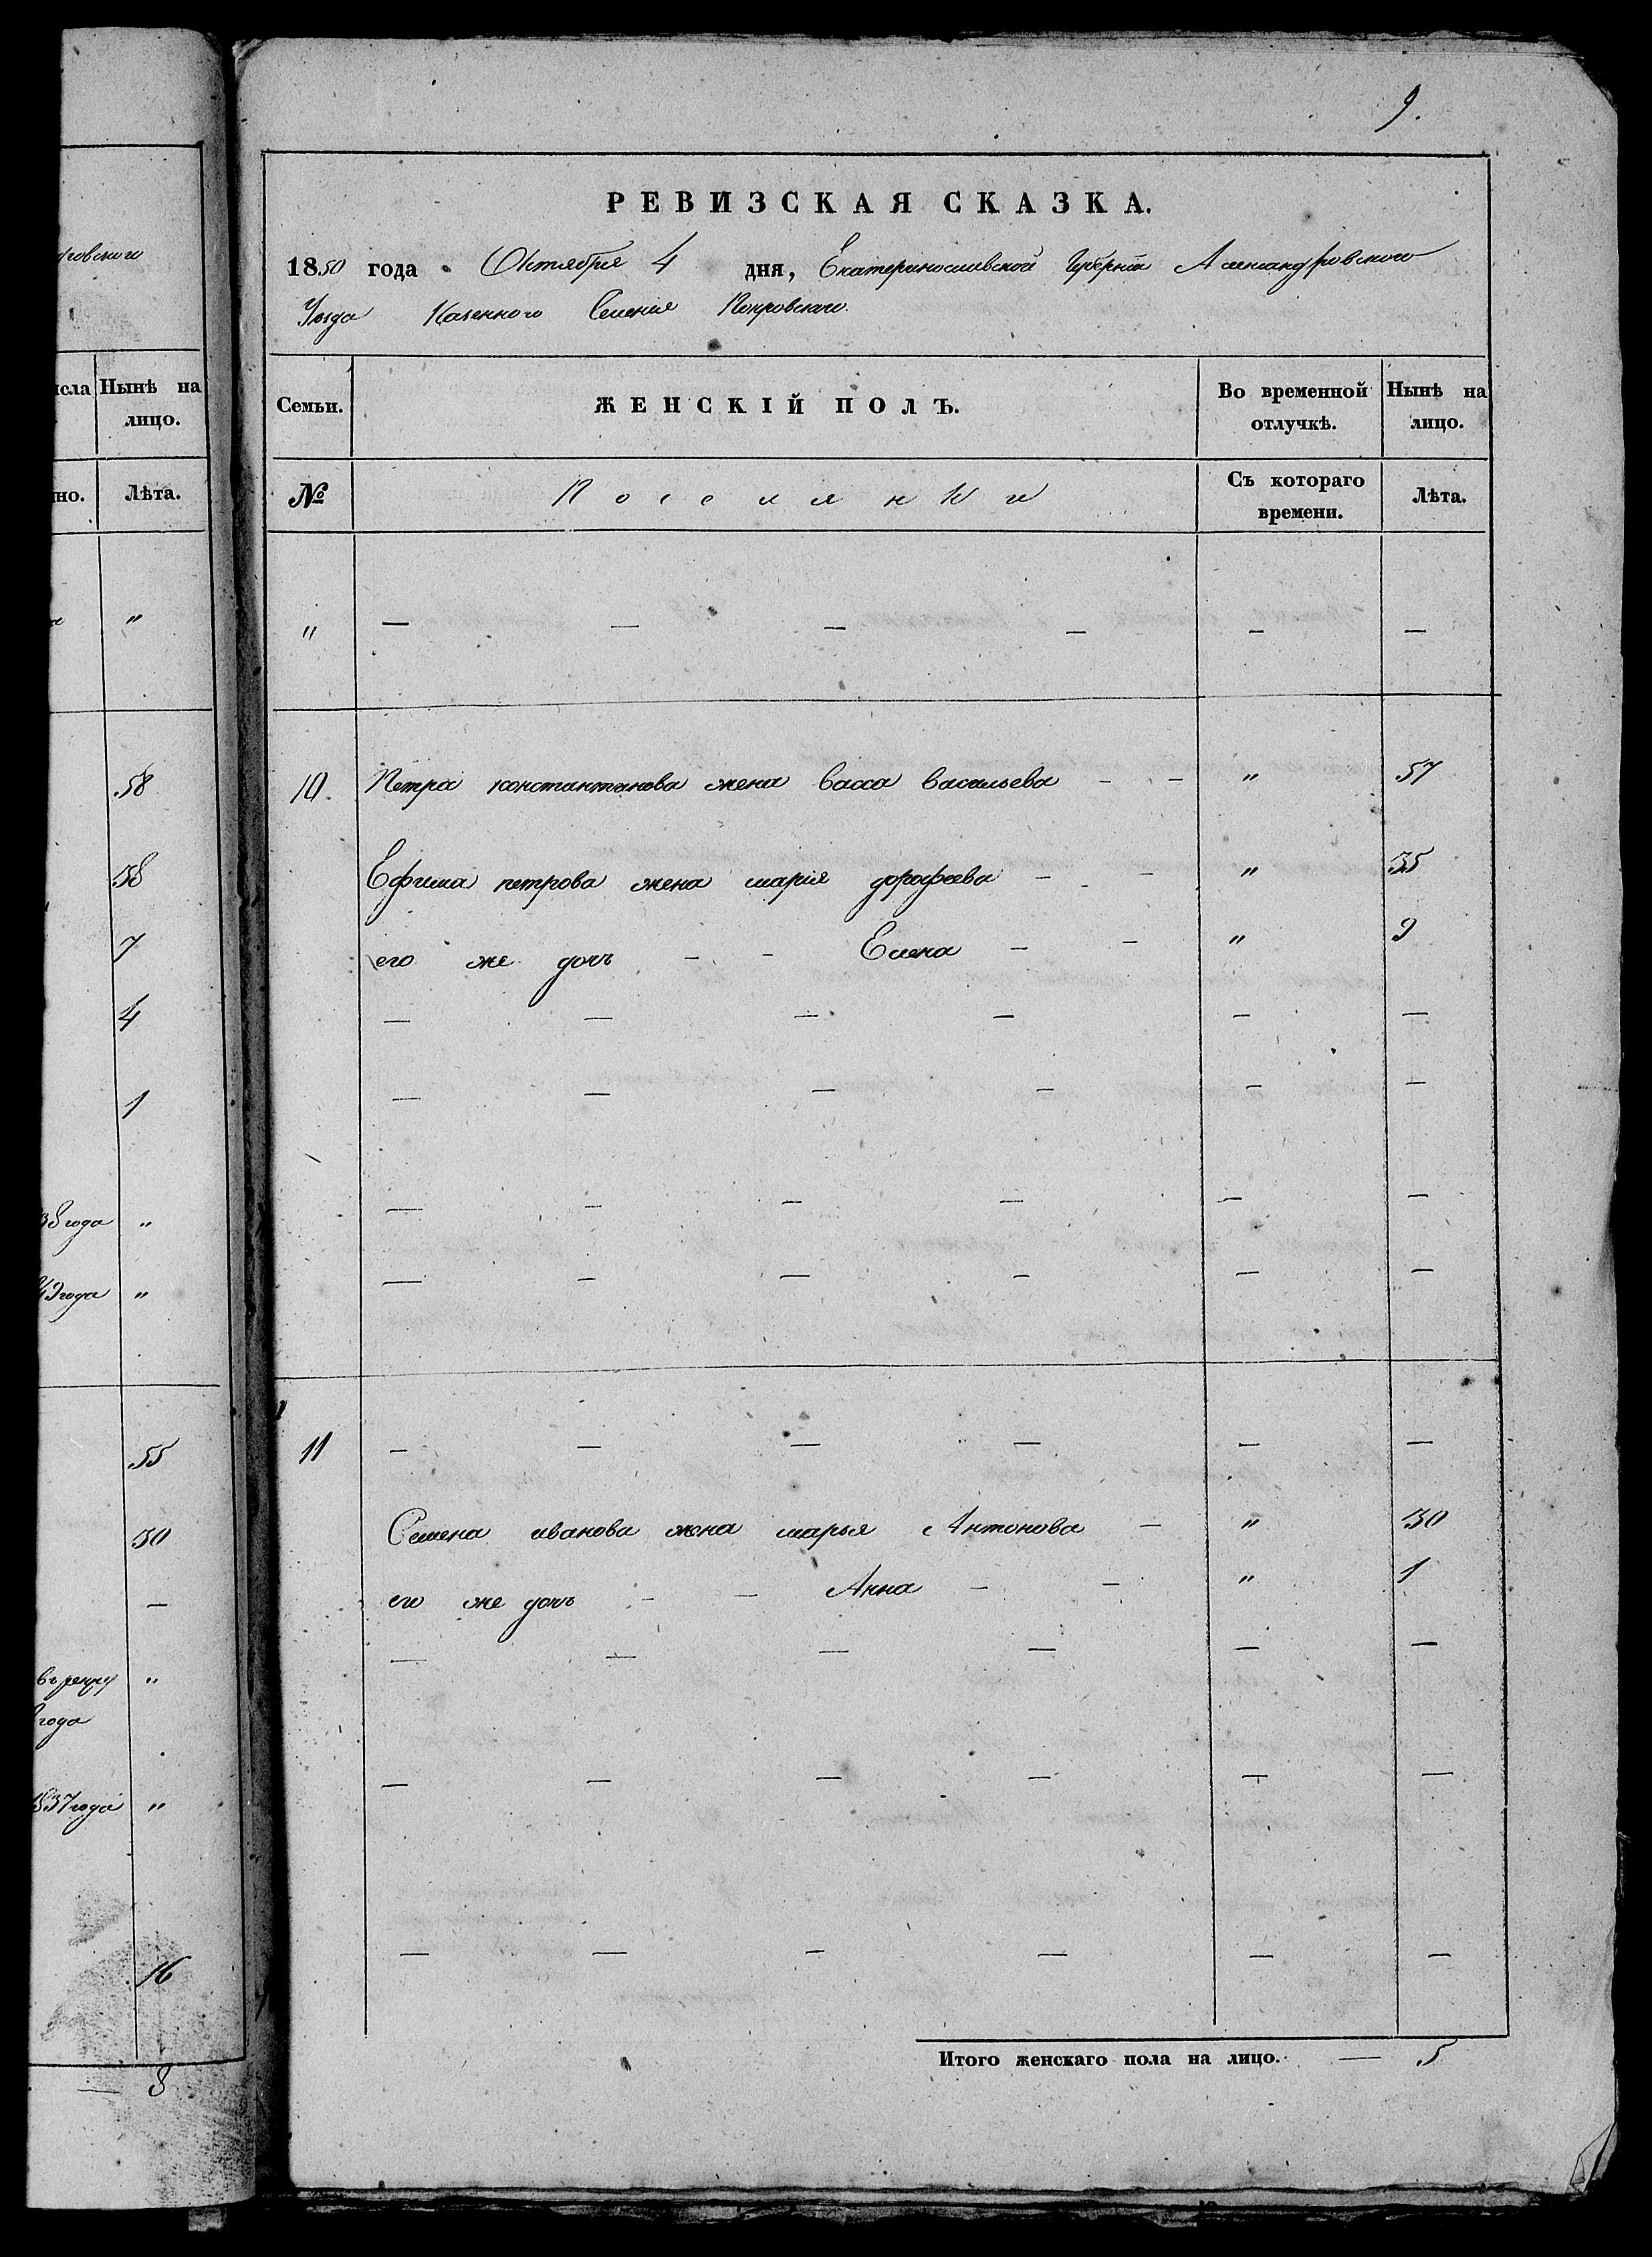 9.
РЕВИЗСКАЯ СКАЗКА.
1850 года Октября 4 дня, Екатеринославской Губерніи Александровского
Уезда Казенного Селенія Покровскаго.
Семьи. ЖЕНСКІЙ ПОЛЪ. Во временной отлучкѣ. Нынѣ на лицо.
№ Поселянки Съ котораго времени. Лѣта.
" — — — — — —
10. Петра константинова жена васса васильева - - " 57
Ефима петрова жена марія дорофеева - - " 35
его же дочь - - Елена - - " 9
— — — — — —
— — — — — —
— — — — — —
— — — — — —
11 — — — — — —
Семена иванова жена марья Антонова - " 30
его же дочь - - Анна - - " 1
— — — — — —
— — — — — —
— — — — — —
Итого женскаго пола на лицо. — 5
ровского
исла Нынѣ на лицо.
но. Лѣта.
"
58
38
7
4
1
38 года "
49 года "
55
30
—
"
года
1837 года "
16
— 8